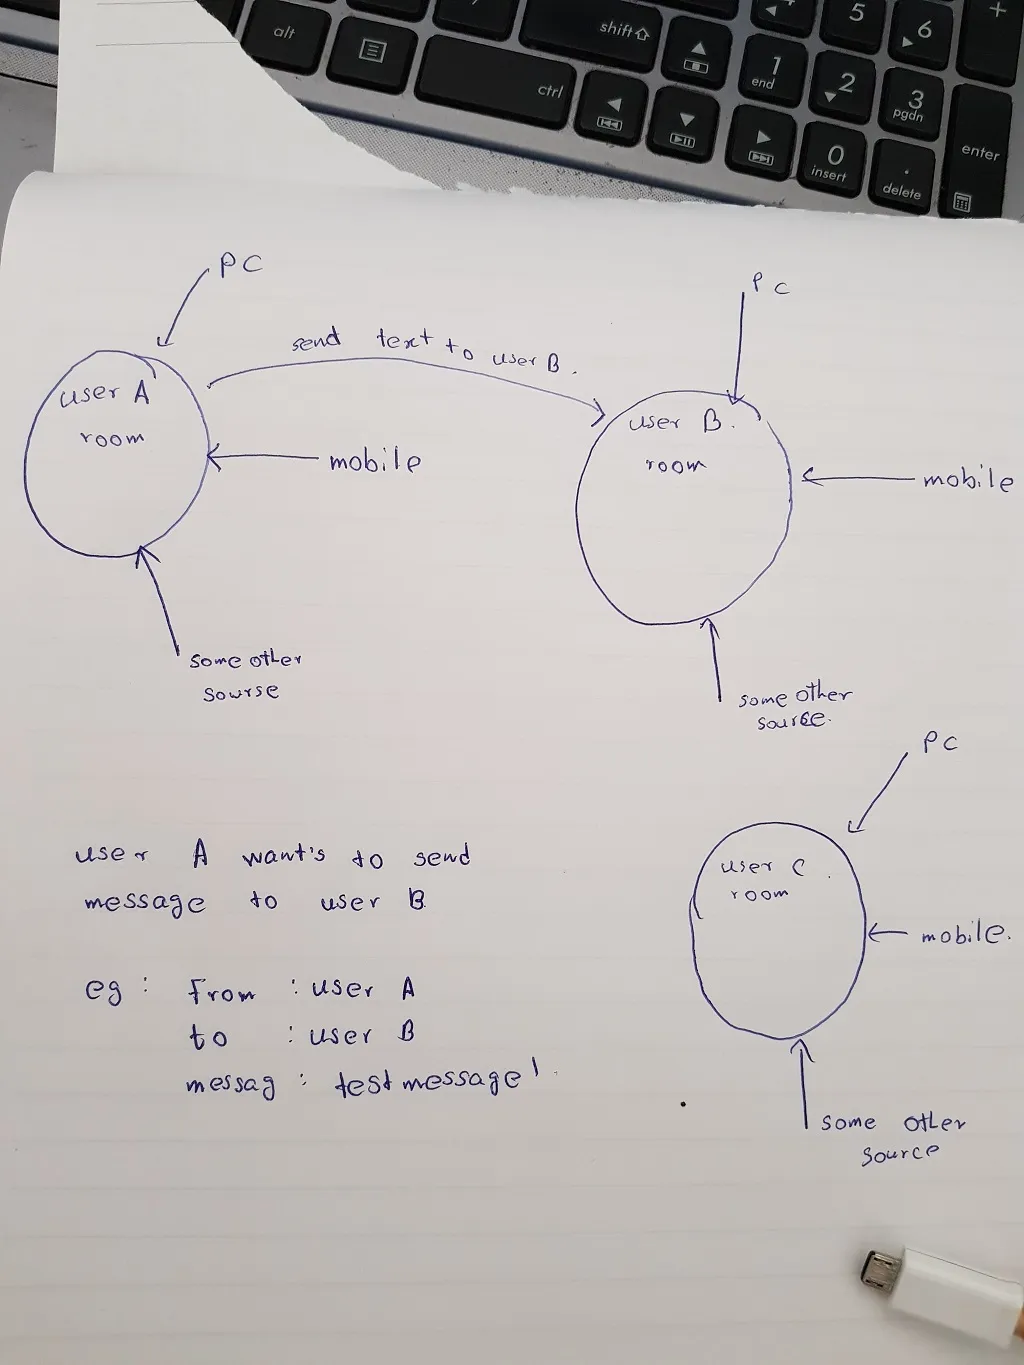 alt
shift
ctrl
1
end
2
3
pgdn
5
6
+
0
insert
.
delete
enter
PC
send text to user B.
user A
room
mobile
some other
sourse
PC
user B.
room
mobile
some other
source.
user A want's to send
message to user B
eg : From : user A
to : user B
messag : test message1.
PC
user C.
room
mobile.
some other
source